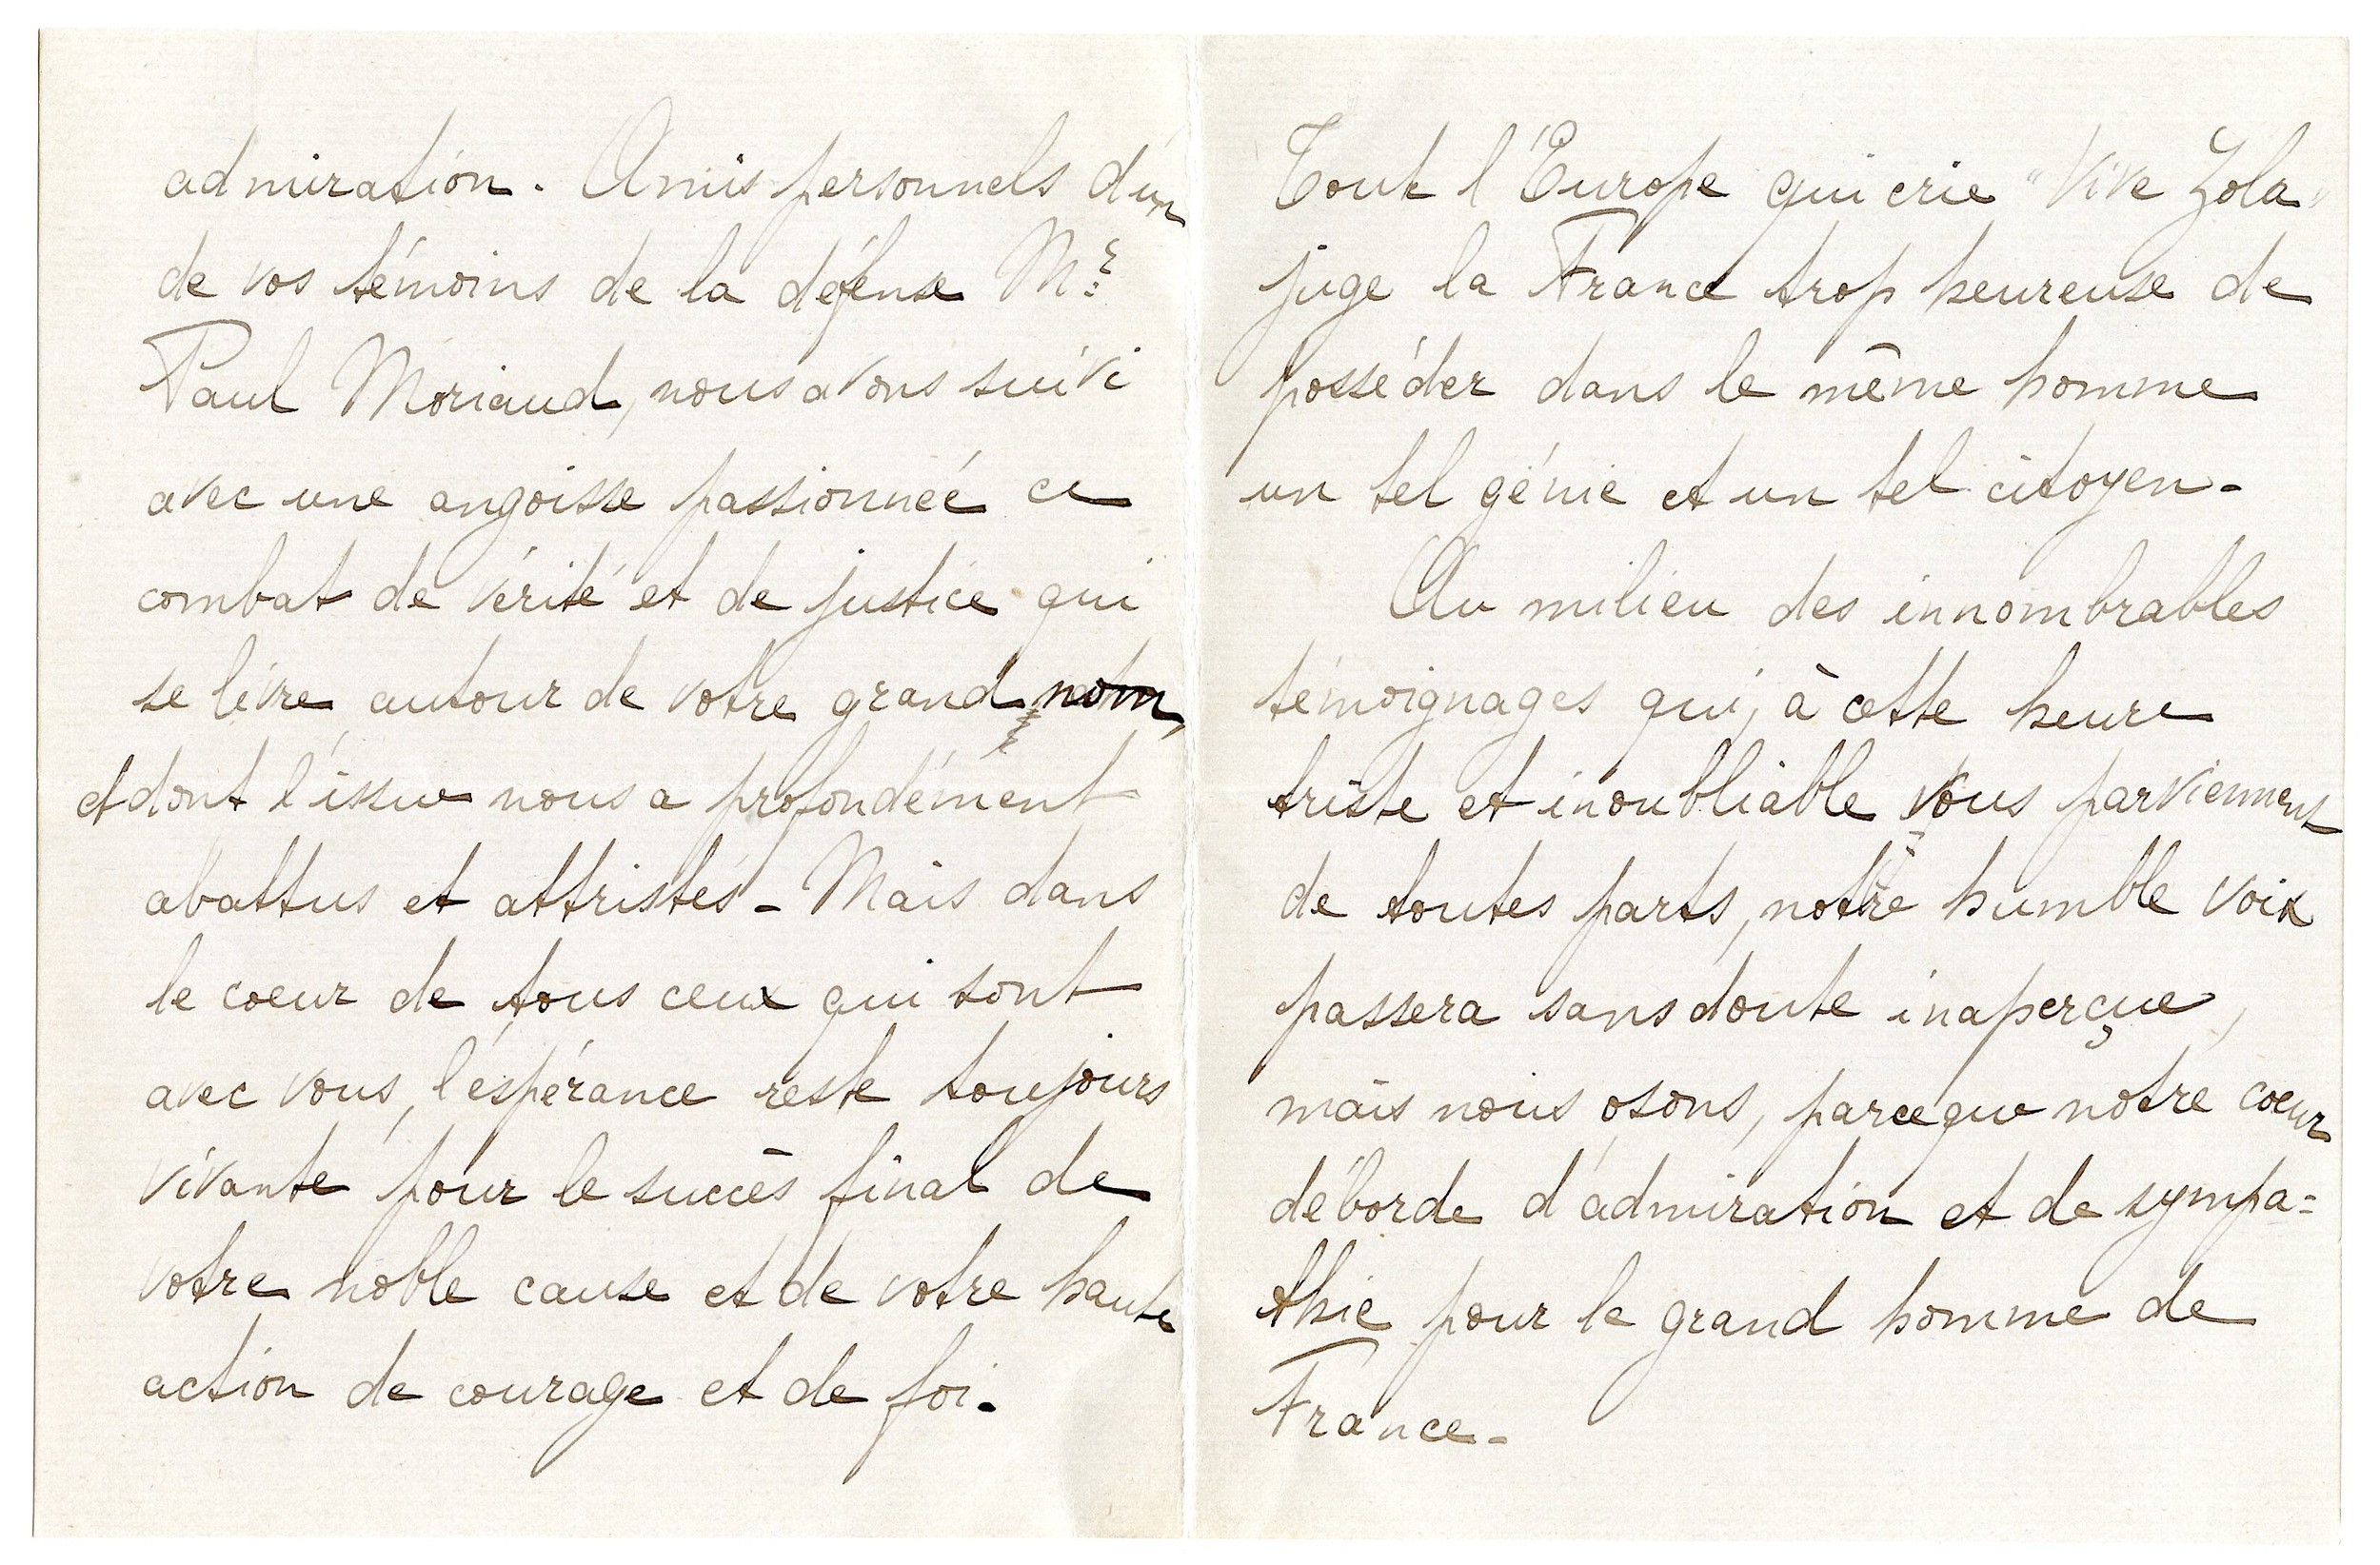 admiration. Amis personnels d'un
de vos témoins de la défense Mr.
Paul Moriaud, nous avons suivi
avec une angoisse passionnée ce
combat de vérité et de justice qui
se livre autour de votre grand nom,
et dont l'issue nous a profondément
abattus et attristés - Mais dans
le coeur de tous ceux qui sont
avec vous, l'espérance reste toujours
vivante pour le succès final de
votre noble cause et de votre haute
action de courage et de foi.
Tout l'Europe qui crie "Vive Zola"
juge la France trop heureuse de
posséder dans le même homme
un tel génie et un tel citoyen -
Au milieu des innombrables
témoignages qui, à cette heure
triste et inoubliable vous parviennent
de toutes parts, notre humble voix
passera sans doute inaperçue,
mais nous osons, parceque notre coeur
déborde d'admiration et de sympa=
thie pour le grand homme de
France -